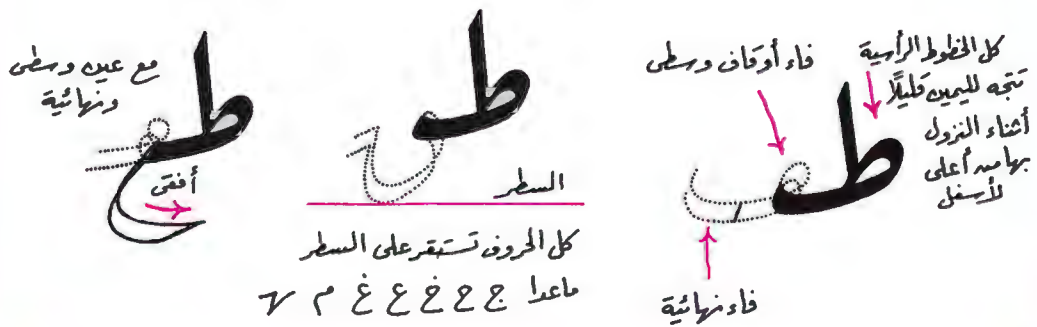 كل الخطوط الرأسية
تتجه لليمين قليلًا
أثناء النزول
بها من أعلى
لأسفل
فاء أو قاف وسطى
ط
فاء نهائية
ط
السطر
كل الحروف تستقر على السطر
ماعدا ج ح خ ع غ م
مع عين وسطى
ونهائية
ط
أفقى